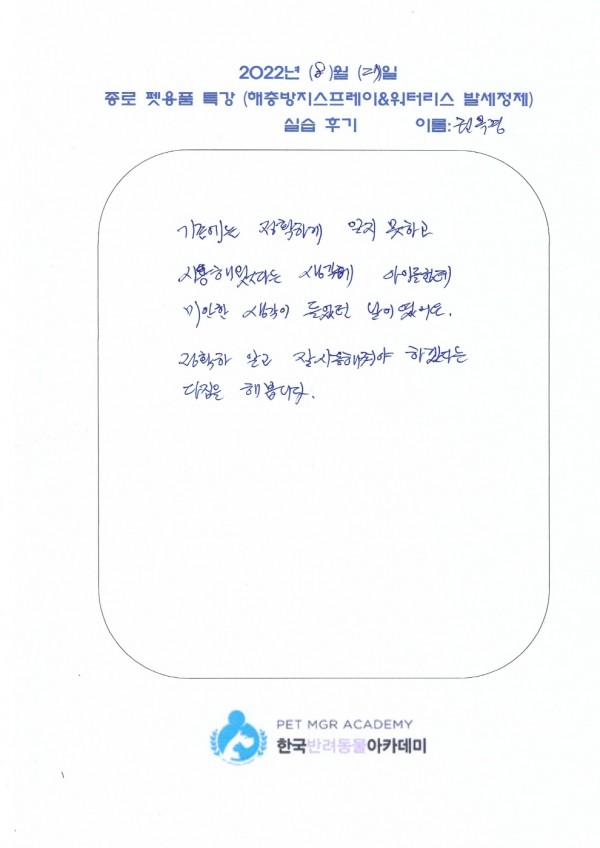 2022년 (8)월 (27)일
종로 펫용품 특강 (해충방지스프레이&워터리스 발세정제)
실습 후기 이름:
기존에는 정확하게 알지 못하고
사용해왔다는 생각에 아이들한테
미안한 생각이 들었던 날이였어요.
정확하 알고 잘사용해줘야 하겠다는
다짐을 해봅니다.
PET MGR ACADEMY
한국반려동물아카데미